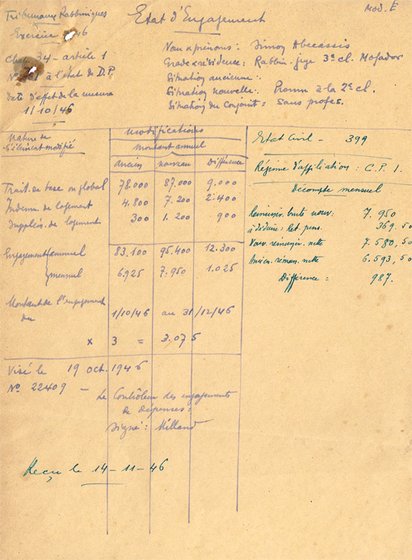 Mod. E
Tribunaux Rabbiniques
Exercice 46
Chap. 34 - article 1
à l'état de D.P.
Date d'effet de la mesure
1/10/46
Etat d'Engagement
Nom & prénoms : Simon Abecassis
Grade & résidence : Rabbin-juge 3e cl. Mogador
Situation ancienne :
Situation nouvelle : Promu à la 2e cl.
Situation du Conjoint : Sans profes.
Nature de l'élément modifié
Modifications
Montant annuel
Ancien nouveau Différence
Trait. de base ou global 78.000 87.000 9.000
Indemn. de logement 4.800 7.200 2.400
Supplém. de logement 300 1.200 900
Engagement annuel 83.100 95.400 12.300
mensuel 6.925 7.950 1.025
Montant de l'engagement
du 1/10/46 au 31/12/46
x 3 = 3.075
Visé le 19 oct. 1946
No 22409 -
Le Contrôleur des engagements
de Dépenses :
Signé : Milland
Reçu le 14-11-46
Etat Civil - 399
Régime d'affiliation : C.P.I.
Décompte mensuel
Rémunér. brute nouv. 7.950
à déduire : Ret. pens. 369,50
Nouv. rémunér. nette 7.580,50
Ancien. rémun. nette 6.593,50
Différence : 987.